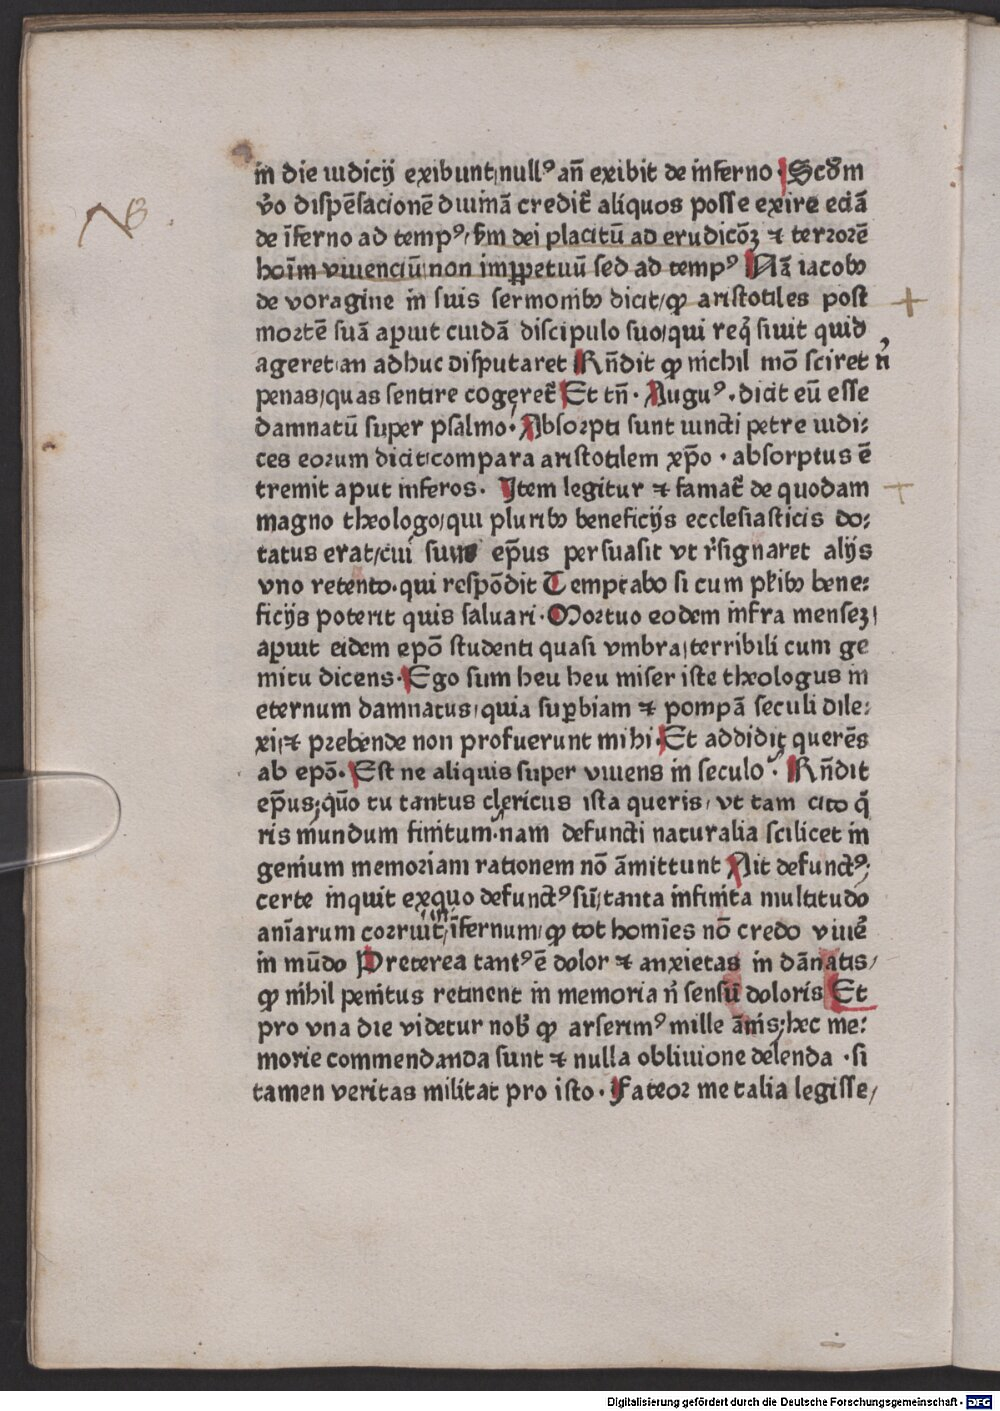 NB.
in die iudicij exibunt/null⁹ añ exibit de inferno · Scd̃m
v̾o dispẽsacionẽ diuinã credit̾ aliquos posse exire eciã
de ĩferno ad temp⁹/ s̃m dei placitũ ad erudicõꝫ ⁊ terrorẽ
hoĩm viuenciũ/non imꝑpetuũ sed ad temp⁹ Nã iacobꝰ
de voragine in suis sermonibꝰ dicit/ꝙ aristotiles post
mortẽ suã aparuit cuidã discipulo suo/qui req̃siuit quid
ageret/an adhuc disputaret Rñdit ꝙ nichil mõ sciret ñ
penas/quas sentire cogeret̾ Et tñ · Augu⁹ · dicit eũ esse
damnatũ super psalmo · Absorpti sunt iuncti petre iudi:
ces eorum dicit/compara aristotilem xp̃o · absorptus ẽ
tremit aput inferos · Item legitur ⁊ famat̾ de quodam +
magno theologo/qui pluribꝰ beneficijs ecclesiasticis do:
tatus erat/cui suus ep̃us persuasit vt r̾signaret alijs
vno retento · qui respõdit Temptabo si cum pl̾ibꝰ bene:
ficijs poterit quis saluari · Mortuo eodem infra menseꝫ/
aparuit eidem epõ studenti quasi vmbra/terribili cum ge
mitu dicens · Ego sum heu heu miser iste theologus in
eternum damnatus/quia suꝑbiam ⁊ pompã seculi dile:
xi/⁊ prebende non profuerunt mihi · Et addidit querẽs
ab epõ · Est ne aliquis super viuens in seculo · Rñdit
ep̃us/quõ tu tantus clericus ista queris/ vt tam cito q̃
ris mundum finitum · nam defuncti naturalia scilicet in
genium memoriam rationem nõ ãmittunt Ait defunct⁹:
certe inquit exquo defunct⁹ sũ/tanta infinita multitudo
aniarum corruit/ĩfernum/ꝙ tot homĩes nõ credo viue̾
in mũdo Preterea tant⁹ ẽ dolor ⁊ anxietas in dãnatis/
ꝙ nihil penitus retinent in memoria ñ sensũ doloris Et
pro vna die videtur nob̾ ꝙ arserim⁹ mille ãnis/hec me:
morie commendanda sunt ⁊ nulla obliuione delenda · si
tamen veritas militat pro isto · Fateor me talia legisse/
Digitalisierung gefördert durch die Deutsche Forschungsgemeinschaft · DFG